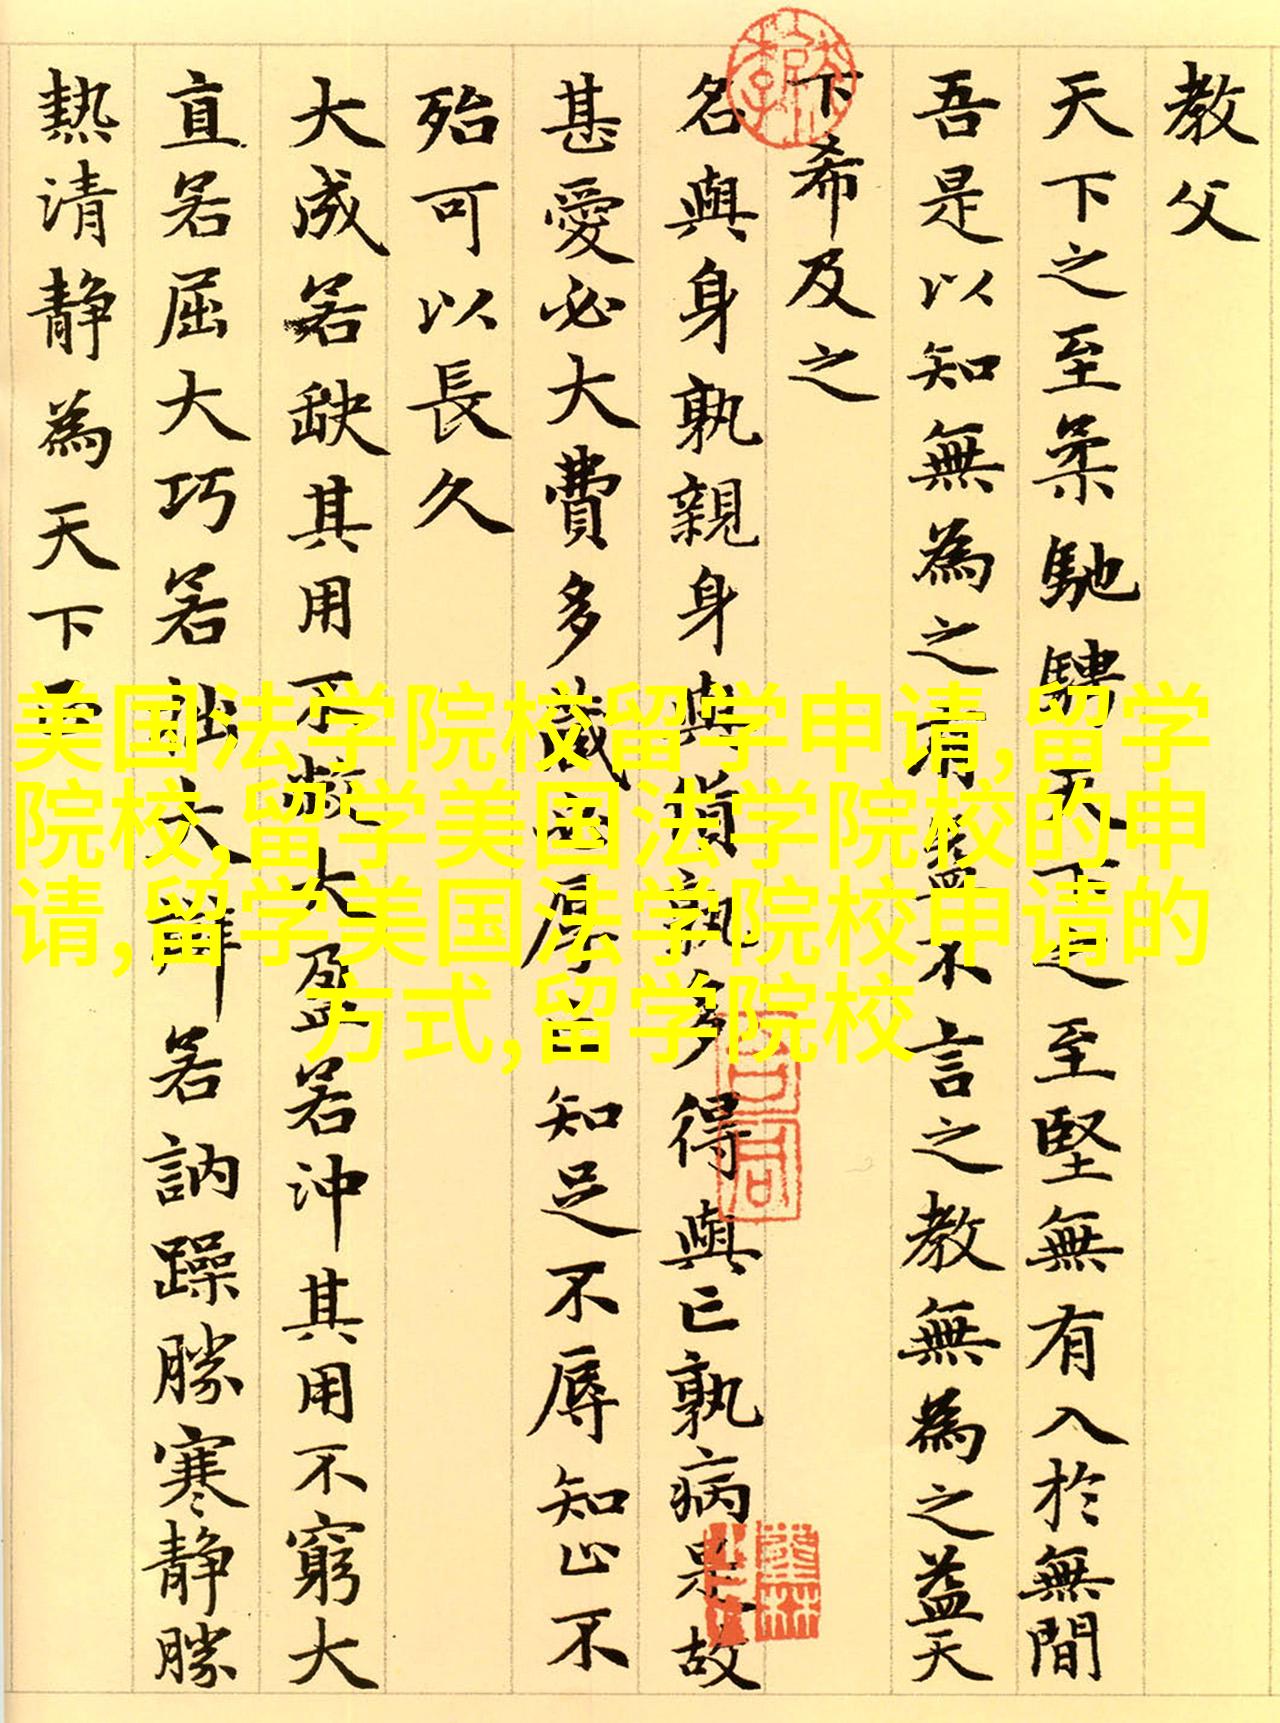 教父
天下之至柔馳騁天下之至堅無有入於無間
吾是以知無為之有益不言之教無為之益天
下希及之
名與身孰親身與貨孰多得與亡孰病是故
甚愛必大費多藏必厚亡知足不辱知止不
殆可以長久
大成若缺其用不敝大盈若沖其用不窮大
直若屈大巧若詘大辯若訥躁勝寒靜勝
熱清靜為天下正
美国法学院校留学申请,留学
院校,留学美国法学院校的申
请,留学美国法学院校申请的
方式,留学院校